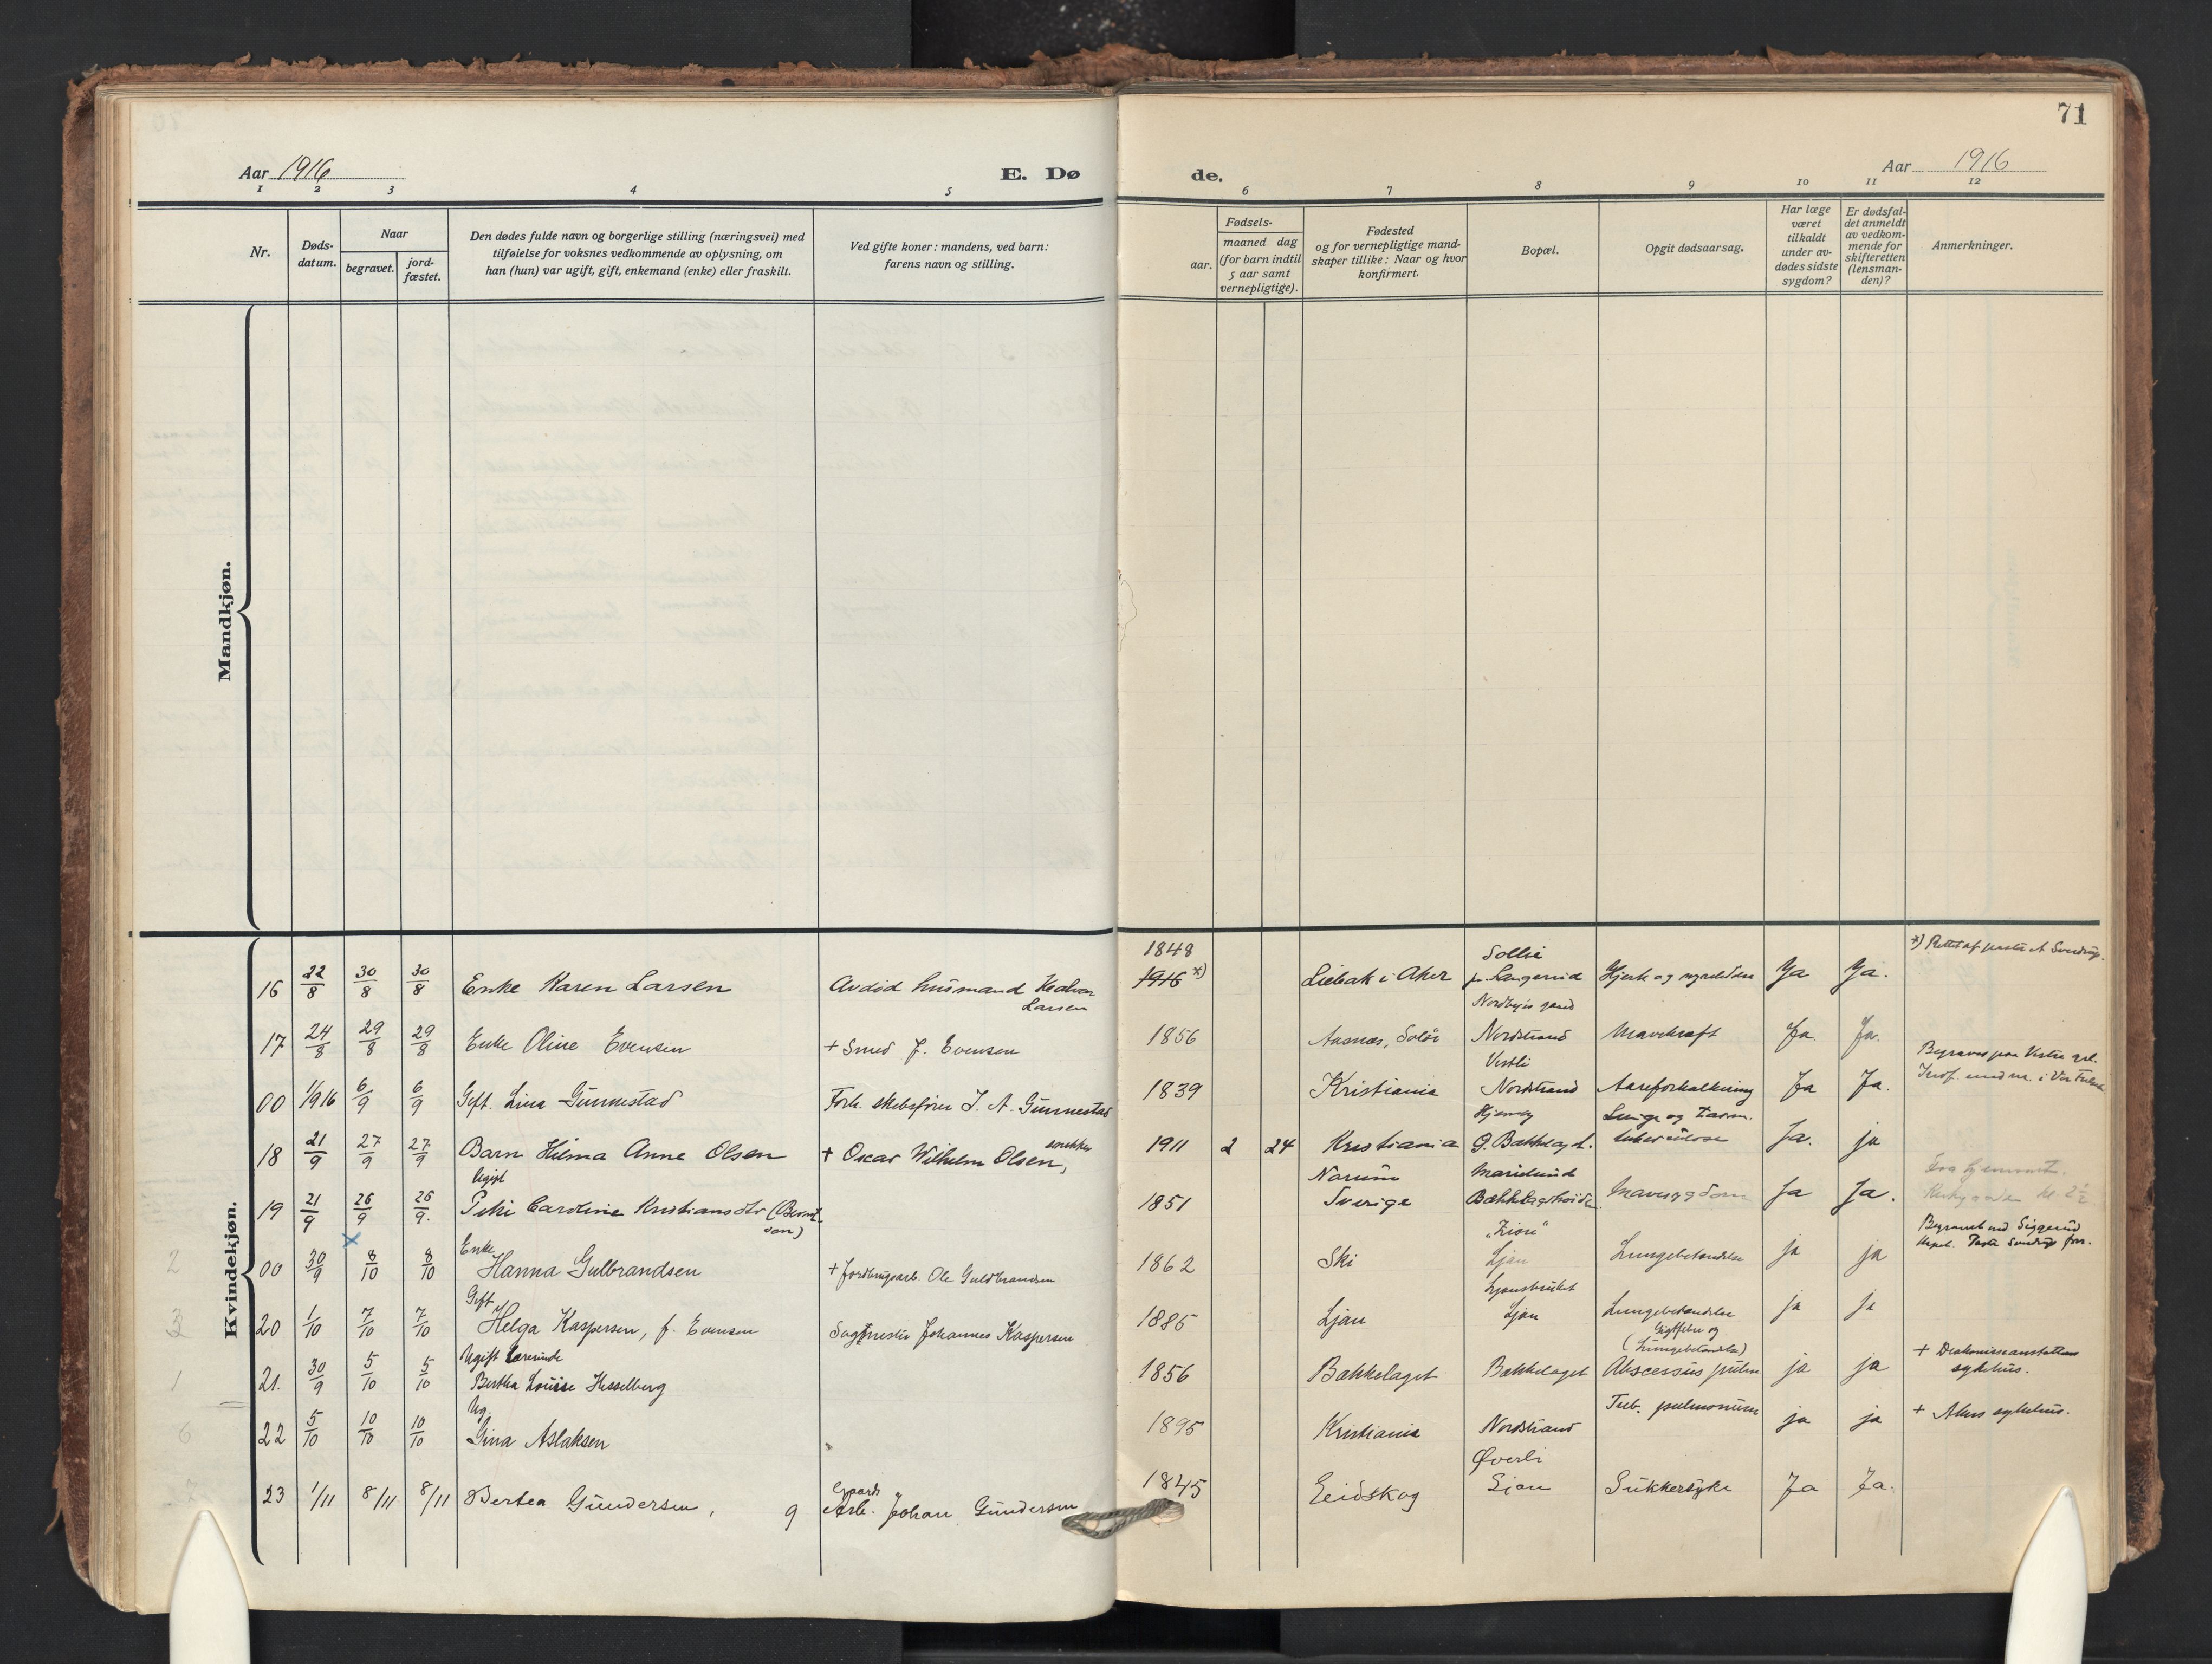 71
Aar 1916
E. Dø
de.
Aar 1916
1 2 3 4 5 6 7 8 9 10 11 12
Nr.
Døds-
datum.
Naar
begravet.
jord-
fæstet.
Den dødes fulde navn og borgerlige stilling (næringsvei) med
tilføielse for voksnes vedkommende av oplysning, om
han (hun) var ugift, gift, enkemand (enke) eller fraskilt.
Ved gifte koner: mandens, ved barn:
farens navn og stilling.
Fødsels-
aar.
maaned dag
(for barn indtil
5 aar samt
vernepligtige).
Fødested
og for vernepligtige mand-
skaper tillike: Naar og hvor
konfirmert.
Bopæl.
Opgit dødsaarsag.
Har læge
været
tilkaldt
under av-
dødes sidste
sygdom?
Er dødsfal-
det anmeldt
av vedkom-
mende for
skifteretten
(lensman-
den)?
Anmerkninger.
Mandkjøn.
Kvindekjøn.
16 22/8 30/8 30/8 Enke Karen Larsen Avdød husmand Halvor
Larsen
1848
1916 *) Liebak i Aker Sollie
Langerud Ja Ja.
17 24/8 29/8 29/8 Enke Oline Evensen + Smed J. Evensen 1856 Aasnes, Solør Nordstrand Mavekræft Ja Ja.
00 1/9 16 6/9 6/9 Gift. Lina Gunnestad Forh. skibsfører J. A. Gunnestad 1839 Kristiania Vestli
Nordstrand Aareforkalkning Ja Ja.
18 21/9 27/9 27/9 Barn Hilma Anne Olsen + Oscar Wilhelm Olsen, snekker 1911 2 24 Kristiania Lunge og tarm.
tuberculose Ja. ja
19 21/9 26/9 26/9. Ugift
Caroline (Bernt-
sen)
1851 Sverige Mavesygdom Ja Ja.
00 30/9 8/10 8/10 Enke
Hanna Gulbrandsen Ole Guldbrandsen 1862 Ski "Zion"
Ljan Lungebetændelse ja ja
20 1/10 7/10 7/10 Gift
Helga Kaspersen, f. Evensen Johannes Kaspersen 1885 Ljan Ljansbruket
Ljan Lungebetændelse ja ja
21. 30/9 5/10 5/10 Ugift Lærerinde
Bertha Louise Hesselberg 1856 Bækkelaget Bækkelaget Gigtfeber og
(Lungebetændelse)
Abscessus pulm ja ja + Diakonisseanstaltens
sykehus.
22 5/10 10/10 10/10 Ug.
Gina Aslaksen 1895 Kristiania Nordstrand Tub. pulmonum ja ja + Akers sykehus.
23 1/11 8/11 8/11 Bertea Gundersen, g Arb. Johan Gundersen 1845 Eidskog Øverli
Ljan Sukkersyke Ja Ja.